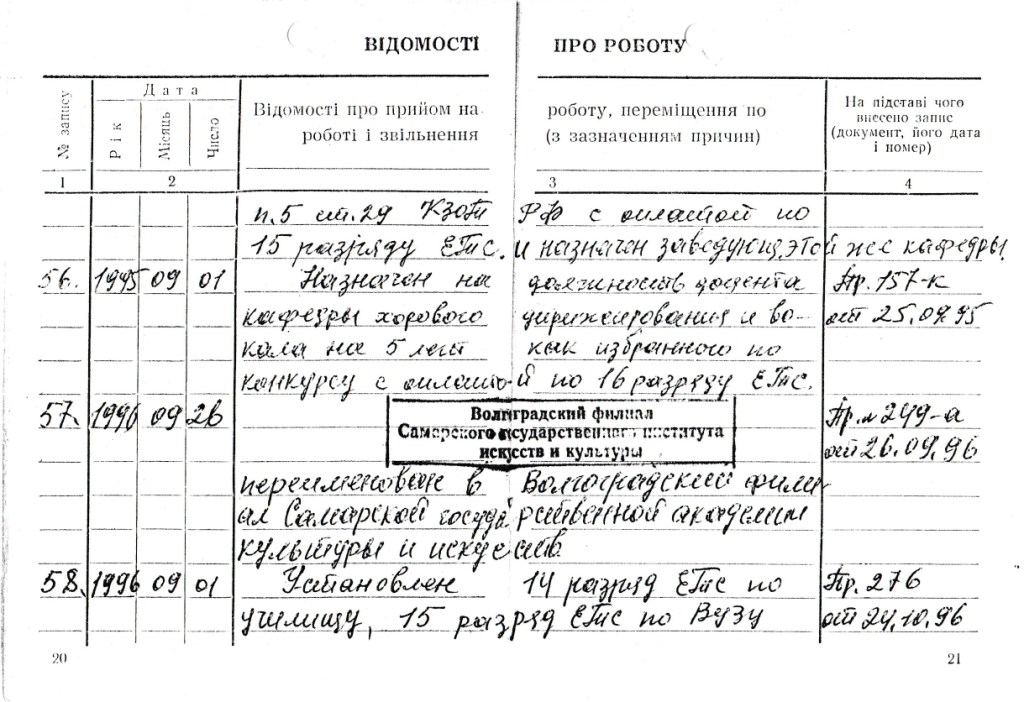 ВІДОМОСТІ ПРО РОБОТУ
№ запису
Дата
Рік
Місяць
Число
Відомості про прийом на роботу, переміщення по
роботі і звільнення (з зазначенням причин)
На підставі чого
внесено запис
(документ, його дата
і номер)
1 2 3 4
п.5 ст.29 КЗоТа РФ с оплатой по
15 разряду ЕТС. и назначен заведующ. этой же кафедры
56. 1995 09 01 Назначен на должность доцента Пр. 157-к
кафедры хорового дирижирования и во- от 25.09.95
кала на 5 лет как избранного по
конкурсу с оплатой по 16 разряду ЕТС.
57. 1996 09 26 Волгоградский филиал Пр. № 249-а
Самарского государственного института
искусств и культуры от 26.09.96
переименован в Волгоградский фили-
ал Самарской государственной академии
культуры и искусств
58. 1996 09 01 Установлен 14 разряд ЕТС по Пр. 276
училищу, 15 разряд ЕТС по ВУЗу от 24.10.96
20 21